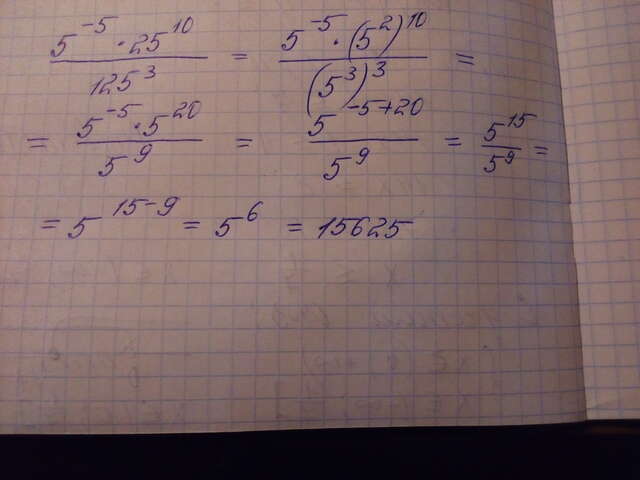 5^-5 · 25^10 / 125^3 = 5^-5 · (5^2)^10 / (5^3)^3 =
= 5^-5 · 5^20 / 5^9 = 5^-5+20 / 5^9 = 5^15 / 5^9 =
= 5^15-9 = 5^6 = 15625